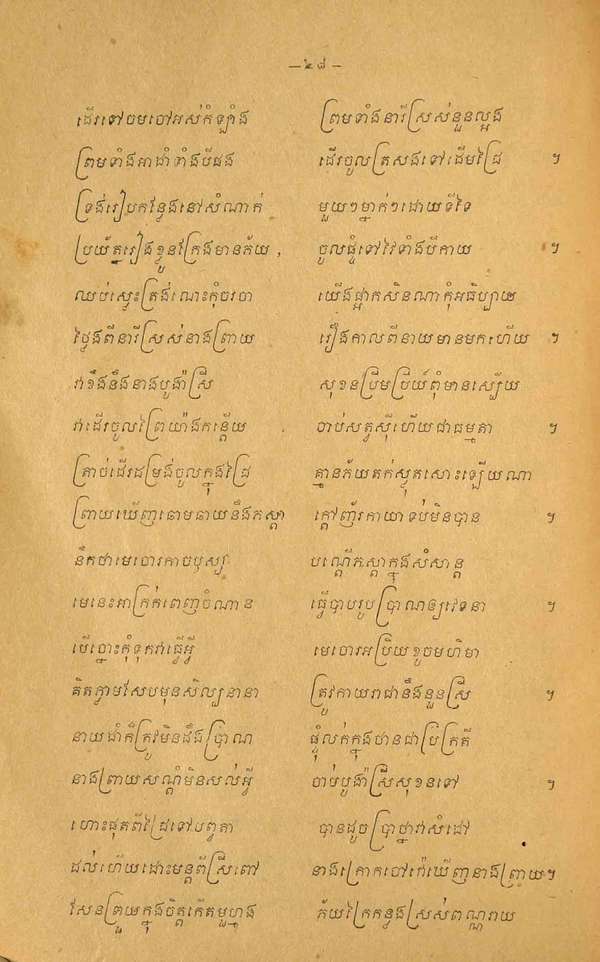 —២៨—
ដើរទៅចមចៅអស់កំឡាំង ព្រមទាំងនារីស្រស់នួនល្អង
ព្រមទាំងអាជាំទាំងបីផង ដើរចូលត្រសងទៅដើមជ្រៃ ។
ទ្រង់រៀបកន្ទែងនៅសំណាក់ មួយៗម្នាក់ៗដោយទីទៃ
ប្រយ័ត្នរៀងខ្លួនក្រែងមានភ័យ , ចូលផ្ទំទៅវៃទាំងបីកាយ ។
ឈប់ស្ងេះត្រង់ណេះកុំចរចា យើងផ្អាកសិនណាកុំអធិប្បាយ
ថ្លែងពីនារីស្រស់នាងព្រាយ រឿងកាលពីនាយមានមកហើយ ។
វាខឹងនឹងនាងបូង៉ាស្រី សុខនប្រឹមប្រិយ៍ពុំមានស្បើយ
វាដើរចូលព្រៃយ៉ាងកន្តើយ ចាប់សត្វស៊ីហើយជាធម្មតា ។
ត្រាច់ដើរដម្រង់ចូលក្នុងជ្រៃ គ្មានភ័យតក់ស្លុតសោះឡើយណា
ព្រាយឃើញឆោមឆាយនឹងភស្តា ក្តៅញ័រកាយាទប់មិនបាន ។
នឹកថាមេចោរកាចឫស្យា បណ្តើភស្តាក្នុងសំសាន្ត
មេនេះអាក្រក់ពេញចំណាន ធ្វើបាបរូបប្រាណឲ្យវេទនា ។
បើច្នោះកុំទុកវាធ្វើអ្វី មេចោរអប្រិយខូចមហិមា
គិតភ្លាមសែបមុនសិល្បនានា ត្រូវកាយរាជានឹងនួនស្រី ។
នាយជាំក៏ត្រូវមិនដឹងប្រាណ ផ្ទុំលក់ក្នុងឋានជាប្រក្រតី
នាងព្រាយសណ្តំមិនសល់អ្វី ចាប់បូង៉ាស្រីសុខនទៅ ។
ហោះផុតពីជ្រៃទៅបព្វតា បានដូចប្រាថ្នាវាសំដៅ
ដល់ហើយដោះមន្តពីស្រីពៅ នាងក្រោកចៅរ៉ៅឃើញនាងព្រាយ ។
សែនព្រួយក្នុងចិត្តកើតមួហ្មង ភ័យក្រៃកន្លងស្រស់ពណ្ណរាយ